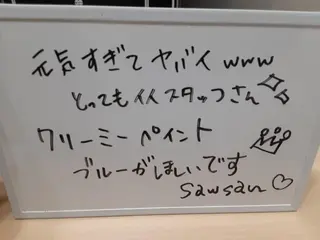 元気すぎてヤバイwww
とってもイイスタッフさん
クリーミーペイント
ブルーがほしいです
sawsan♡